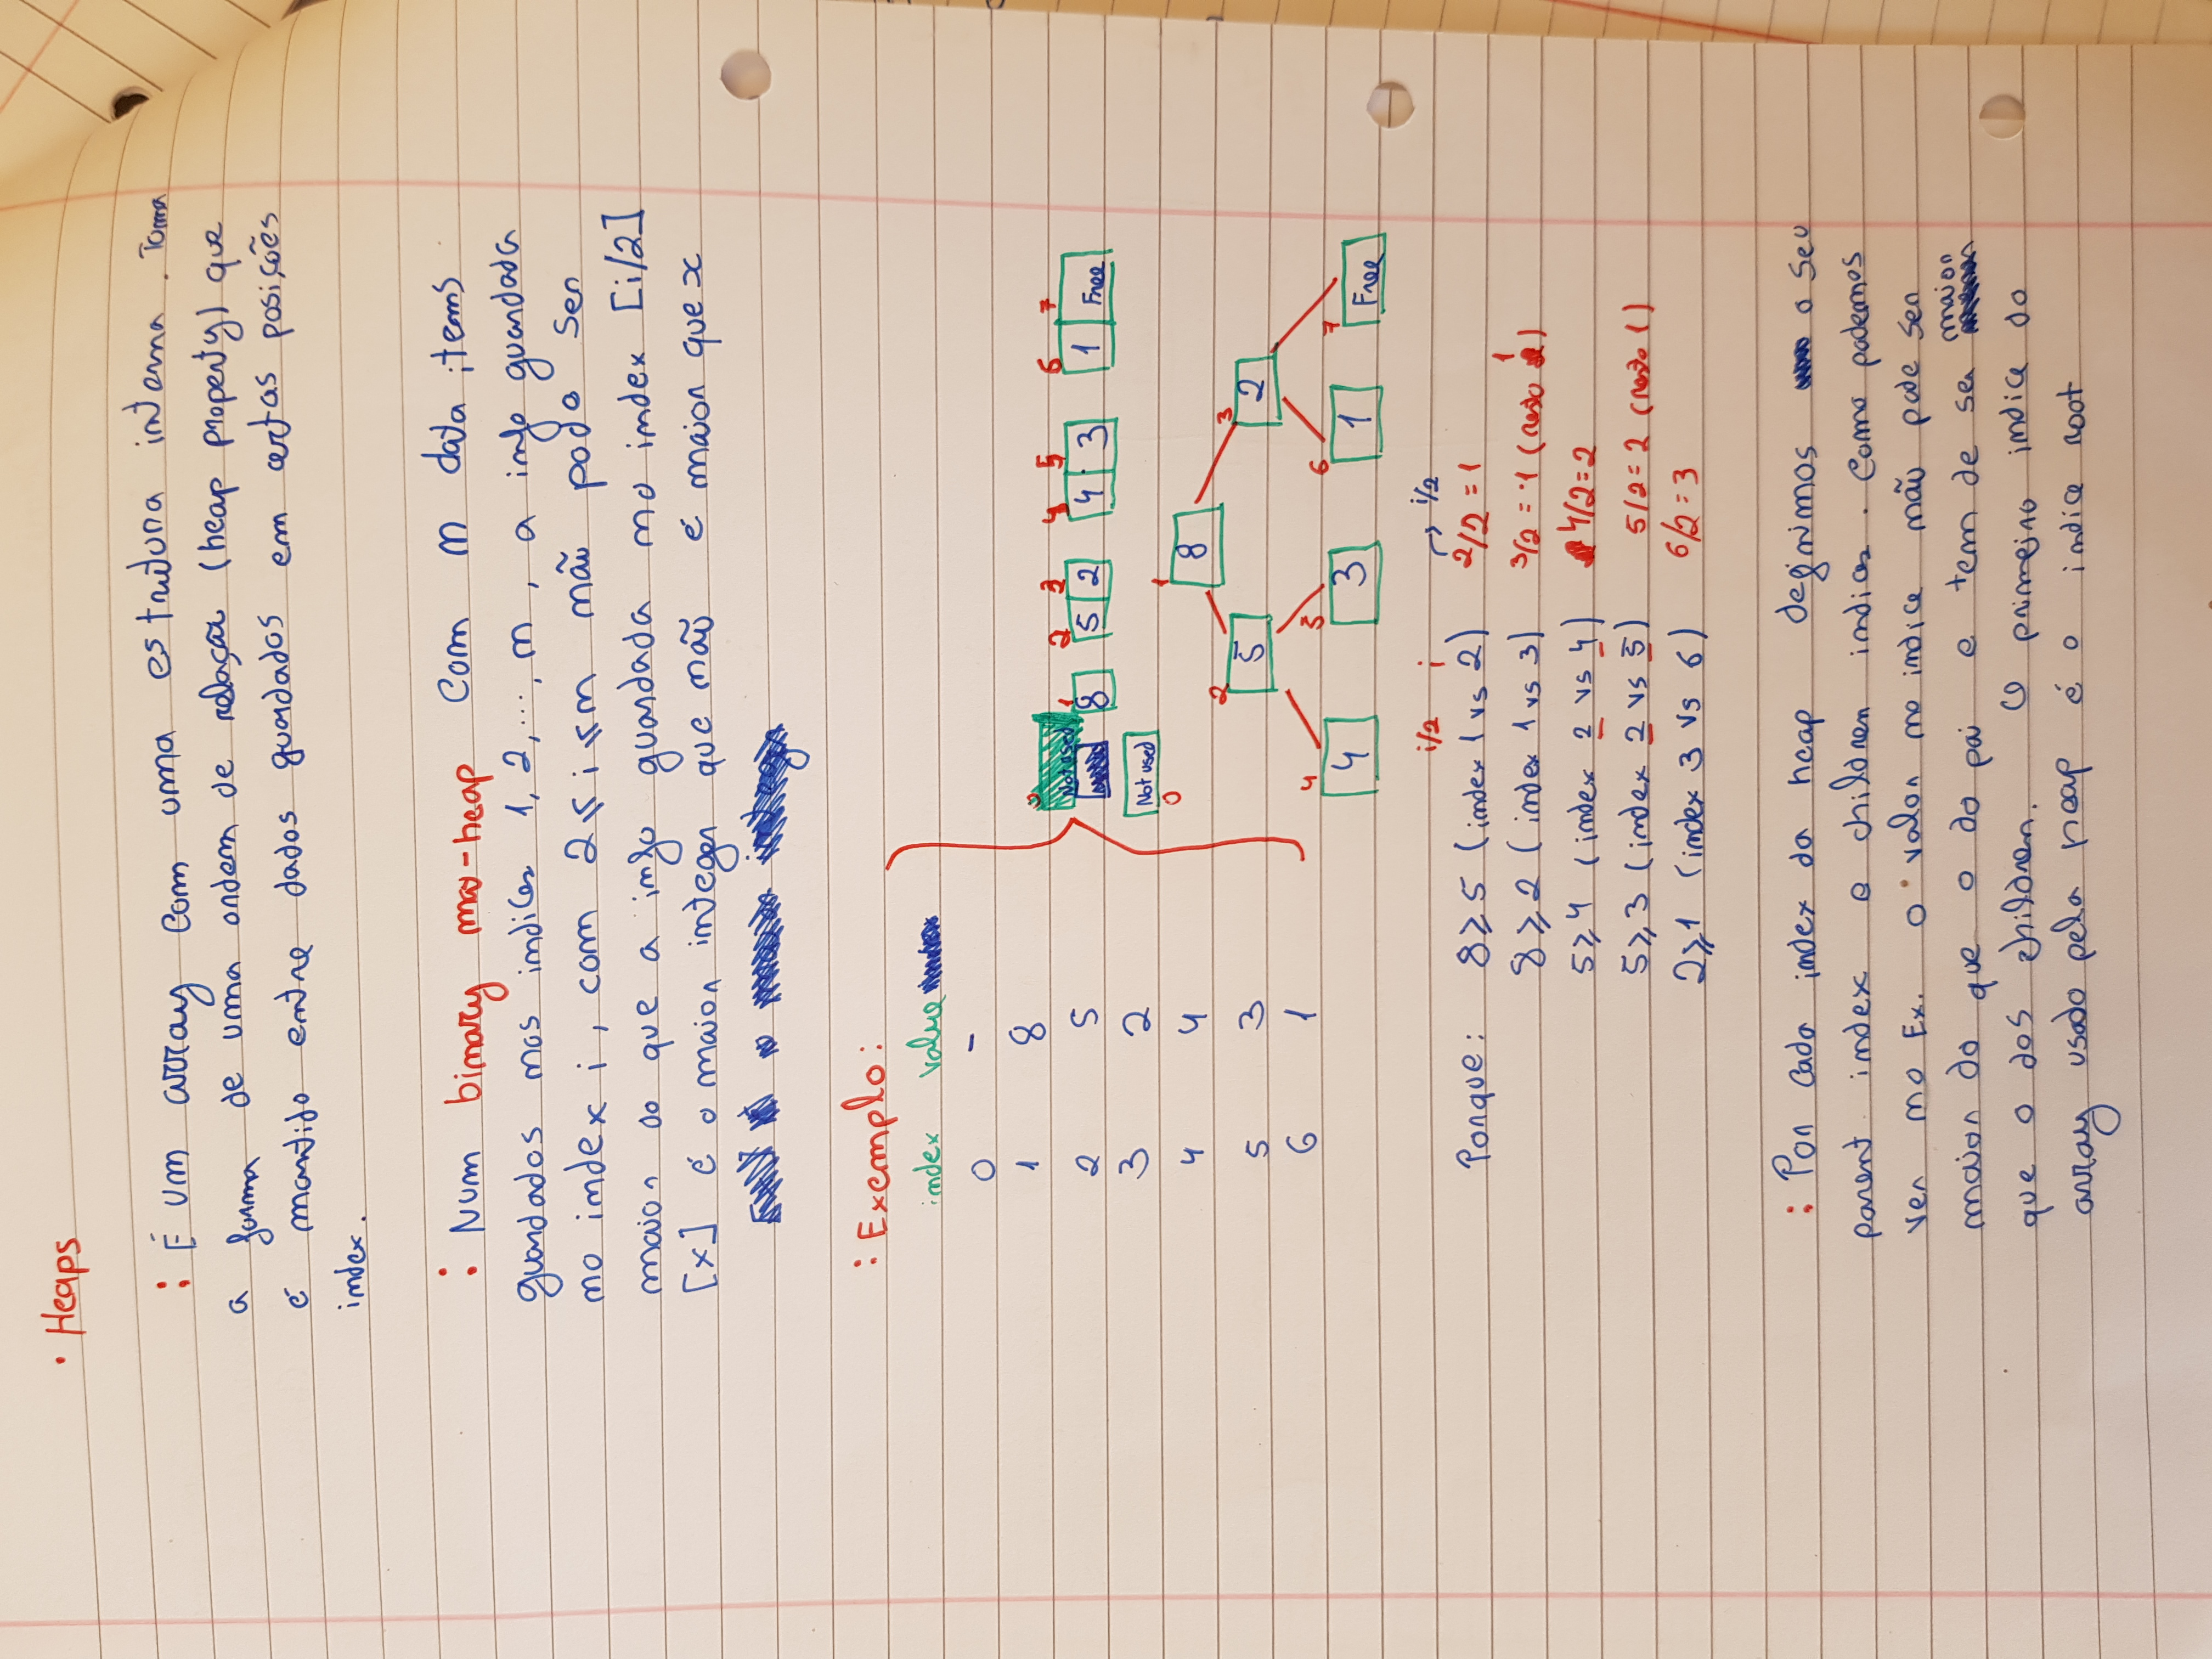 • Heaps
: É um array com uma estrutura interna. Toma
a forma de uma ordem de relação (heap property) que
é mantido entre dados guardados em certas posições
index.
: Num binary max-heap com n data items
guardados nos indices 1, 2, ..., n, a info guardada
no index i, com 2 ≤ i ≤ n não pode ser
maior do que a info guardada no index [i/2]
[x] é o maior integer que não é maior que x
: Exemplo:
index value
0 -
1 8
2 5
3 2
4 4
5 3
6 1
0 1 2 3 4 5 6 7
Not used 8 5 2 4 3 1 Free
Not used
0
1
8
2 3
5 2
4 5 6 7
4 3 1 Free
i/2 i → i/2
Porque: 8 ≥ 5 (index 1 vs 2) 2/2 = 1
8 ≥ 2 (index 1 vs 3) 3/2 = 1 (resto 1)
5 ≥ 4 (index 2 vs 4) 4/2 = 2
5 ≥ 3 (index 2 vs 5) 5/2 = 2 (resto 1)
2 ≥ 1 (index 3 vs 6) 6/2 = 3
: Por cada index da heap definimos o seu
parent index e children indices. Como podemos
ver no Ex. o valor no indice não pode ser
maior do que o do pai e tem de ser maior
que o dos children. O primeiro indice do
array usado pela heap é o indice root